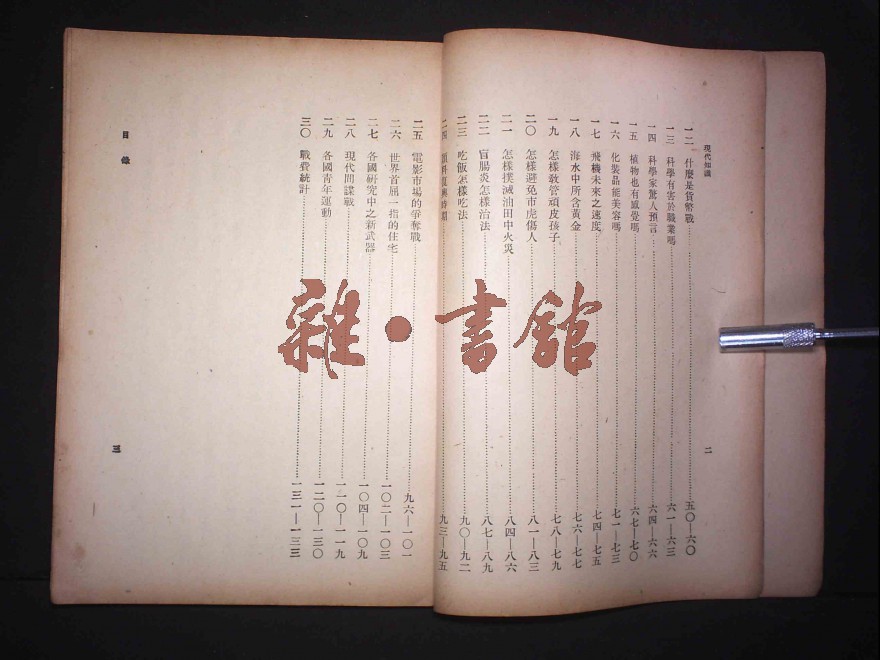 現代知識
一二 什麼是貨幣戰 五〇—六〇
一三 科學有害於職業嗎 六一—六三
一四 科學家驚人預言 六四—六六
一五 植物也有感覺嗎 六七—七〇
一六 化裝品能美容嗎 七一—七三
一七 飛機未來之速度 七四—七五
一八 海水中所含黃金 七六—七七
一九 怎樣教管頑皮孩子 七八—七九
二〇 怎樣避免市虎傷人 八一—八三
二一 怎樣撲滅油田中火災 八四—八六
二二 盲腸炎怎樣治法 八七—八九
二三 吃飯怎樣吃法 九〇—九二
二四 九三—九五
二
二五 電影市場的爭奪戰 九六—一〇一
二六 世界首屈一指的住宅 一〇二—一〇三
二七 各國研究中之新武器 一〇四—一〇九
二八 現代間諜戰 一一〇—一一九
二九 各國青年運動 一二〇—一三〇
三〇 戰費統計 一三一—一三三
目錄
三
雜·書館